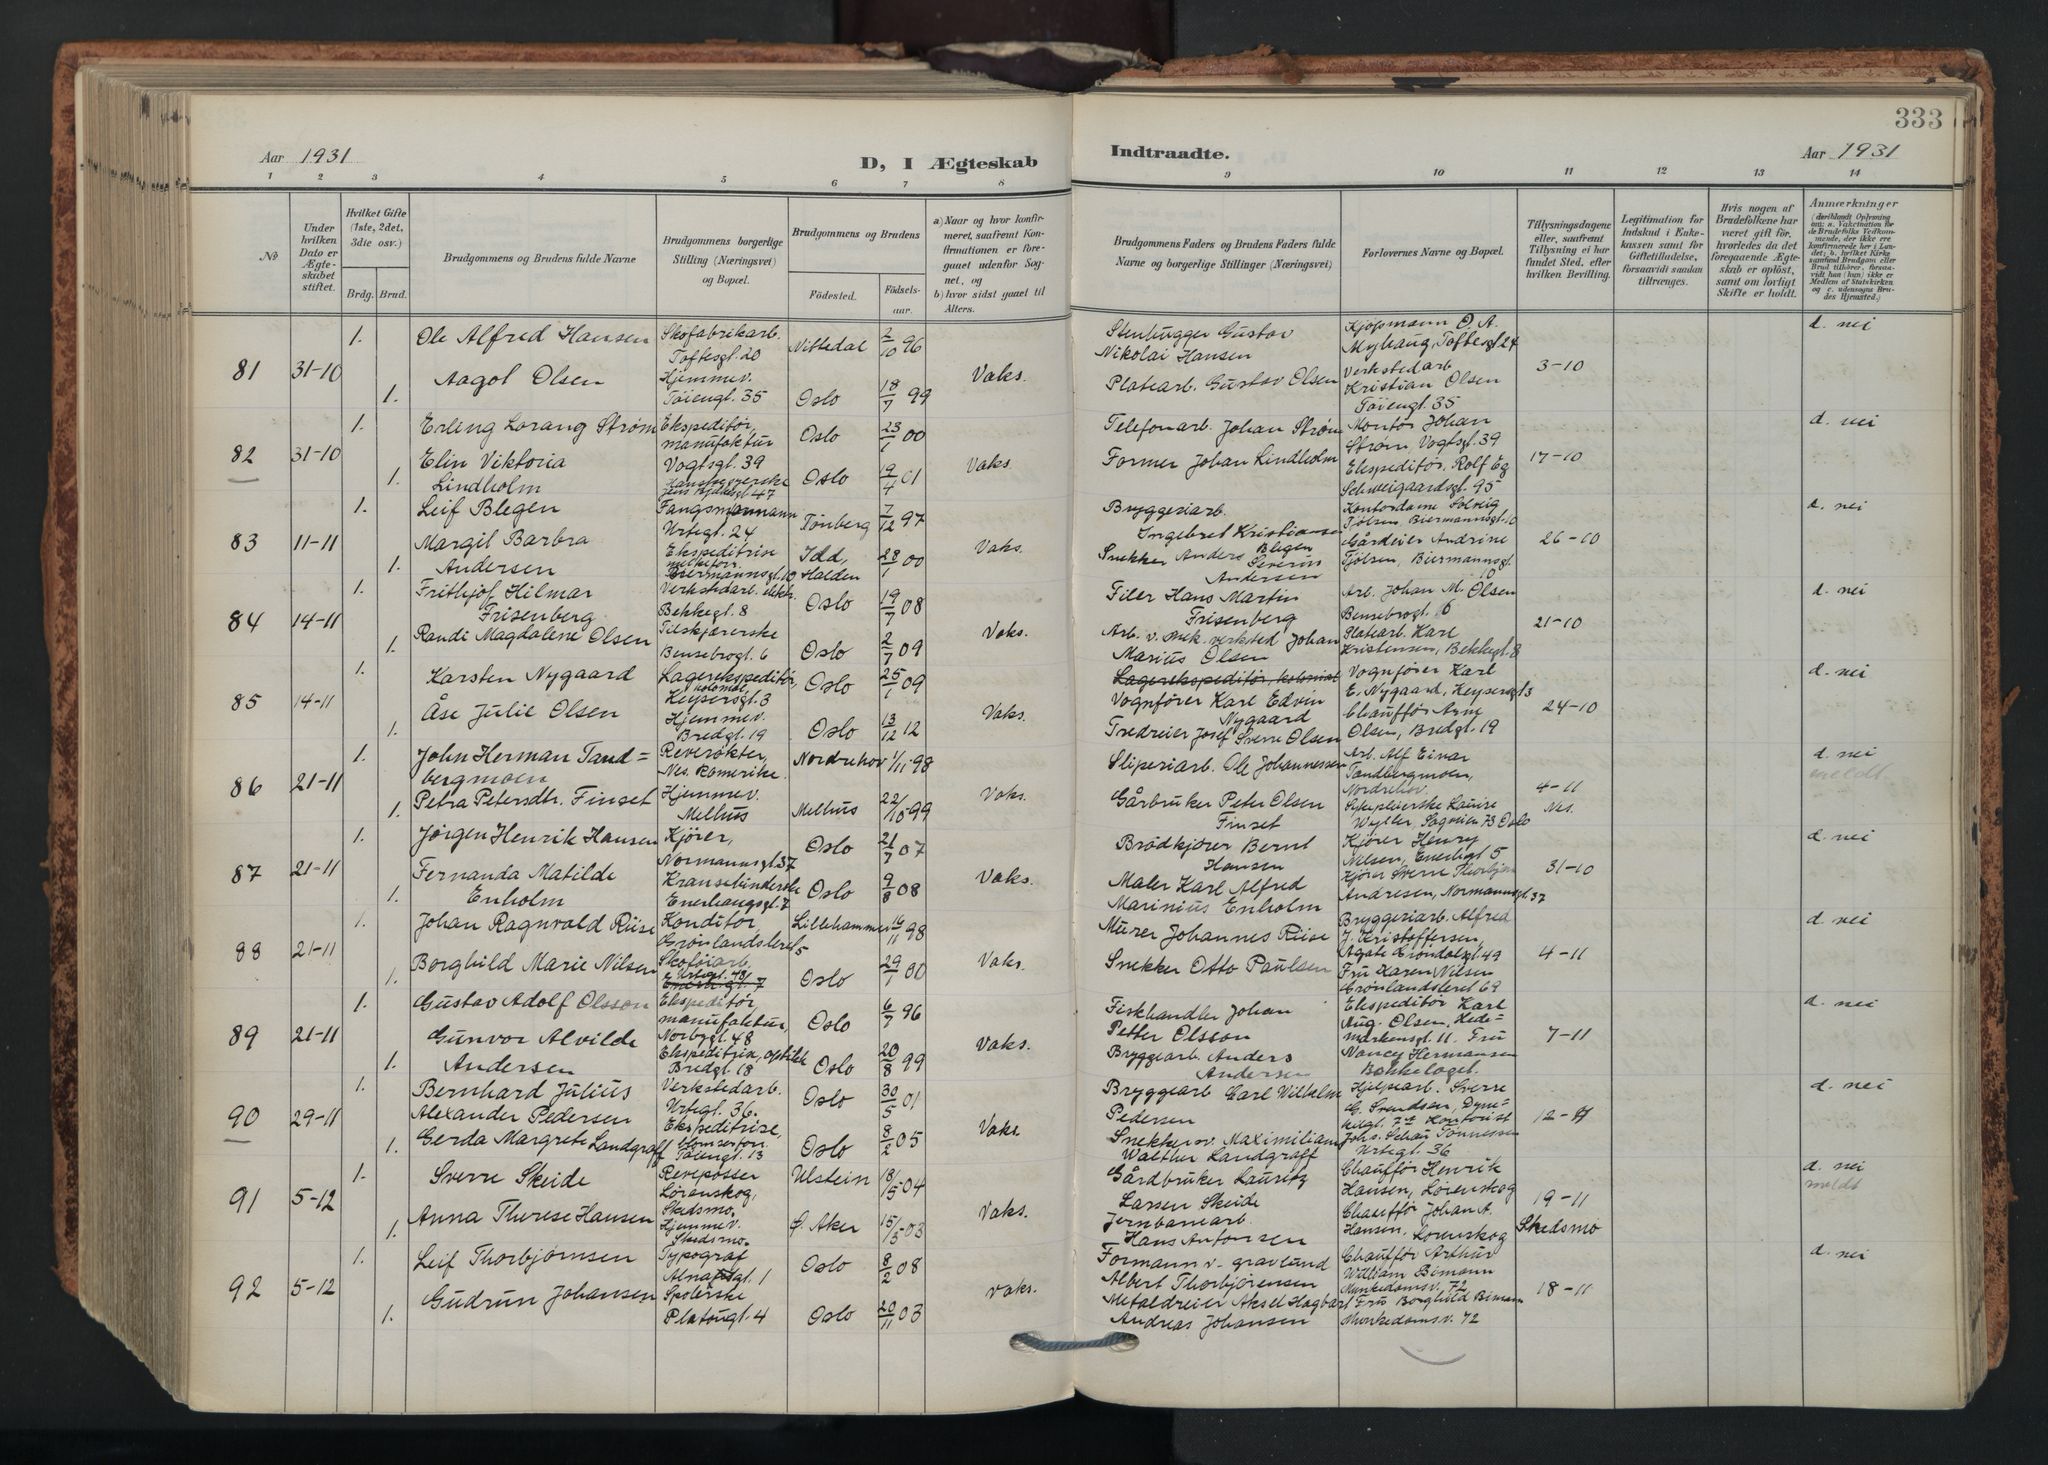 333
Aar 1931
D, I Ægteskab
Indtraadte.
Aar 1931
1 2 3 4 5 6 7 8 9 10 11 12 13 14
No
Under hvilken Dato er Ægteskabet stiftet.
Hvilket Gifte (1ste, 2det, 3die osv.)
Brdg. Brud.
Brudgommens og Brudens fulde Navne
Brudgommens borgerlige Stilling (Næringsvei) og Bopæl.
Brudgommens og Brudens
Fødested.
Fødselsaar.
a) Naar og hvor konfirmeret, saafremt Konfirmationen er foregaaet udenfor Sognet, og
b) hvor sidst gaaet til Alters.
Brudgommens Faders og Brudens Faders fulde Navne og borgerlige Stillinger (Næringsvei)
Forlovernes Navne og Bopæl.
Tillysningsdagene eller, saafremt Tillysning ei har fundet Sted, efter hvilken Bevilling.
Legitimation for Indskud i Enkekassen samt for Giftetilladelse, forsaavidt saadan tiltrænges.
Hvis nogen af Brudefolkene har været gift før, hvorledes da det foregaaende Ægteskab er opløst, samt om lovligt Skifte er holdt.
Anmærkninger
(deriblandt Oplysning om: a. Vakcination for de Brudefolks Vedkommende, der ikke ere konfirmerede her i Landet; b. hvilket Kirkesamfund Brudgom eller Brud tilhører, forsaavidt han (hun) ikke er Medlem af Statskirken og c. udensogns Brudes Hjemsted.)
81 31-10
1. Ole Alfred Hansen
Skofabrikarb.
Toftesgt. 20
Nittedal 2/10 96
1. Aagot Olsen
Hjemmev.
Tøiengt. 35
Oslo 18/7 99
Vaks.
Stenhugger Gustav
Nikolai Hansen
Platearb. Gustav Olsen
Kjøpmann O. A.
Myhaug, Toftesgt 24
Verkstedarb
Kristian Olsen
Tøiengt. 35
3-10
d. nei
82 31-10
1. Erling Lorang Strøm
Ekspeditør,
manufaktur
Vogtsgt. 39
Oslo 23/1 00
1. Elin Viktoria
Lindholm
Oslo 19/4 01
Vaks.
Telefonarb. Johan Strøm
Former Johan Lindholm
Montør Johan
Strøm Vogtsgt. 39
Ekspeditør Rolf Eg
Schweigaardsgt. 95
17-10
d. nei
83 11-11
1. Leif Blegen
Fangsmann
Urtegt. 24
Tønberg 7/12 97
1. Margit Barbra
Andersen
Ekspeditrise
melkeforr.
Biermannsgt. 10
Idd,
Halden
28/1 00
Vaks.
Bryggeriarb.
Ingebret Kristiansen
Blegen
Snekker Anders Severin
Andersen
Kontordame Solveig
Tjølsen Biermannsgt. 10
Gårdeier Andrine
Tjølsen, Biermannsgt.
10
26-10
d. nei
84 14-11
1. Frithjof Hilmar
Frisenberg
Verkstedarb. elektr.
Bekkegt. 8
Oslo 19/7 08
1. Randi Magdalene Olsen
Tilskjærerske
Bensebrogt. 6
Oslo 2/7 09
Vaks.
Filer Hans Martin
Frisenberg
Arb. v. mek. verksted Johan
Marius Olsen
Arb. Johan M. Olsen
Bensebrogt. 6
Platearb. Karl
Kristensen, Bekkegt. 8
21-10
d. nei
85 14-11
1. Karsten Nygaard
Lagerekspeditør,
kolonial
Keysersgt. 3
Oslo 25/1 09
1. Åse Julie Olsen
Hjemmev.
Bredgt. 19
Oslo 13/12 12
Vaks.
Lagerekspeditør, kolonial
Vognfører Karl Edvin
Nygaard
Tredreier Josef Sverre Olsen
Vognfører Karl
E. Nygaard, Keysersgt 3
Chauffør Arne
Olsen, Bredgt. 19
24-10
d. nei
86 21-11
1. John Herman Tand=
bergmoen
Reverøkter,
Nes Romerike.
Nordrehov 1/11-98
1. Petra Petersdtr. Finset
Hjemmev.
Melhus
Melhus 22/10-99
Vaks.
Sliperiarb. Ole Johannessen
Gårbruker Peter Olsen
Finset
Arb. Alf Einar
Tandbergmoen,
Nordrehov.
Sykepleierske Lauise
Wyller, Sognsvn. 73 Oslo
4-11
Nes.
d. nei
meldt
87 21-11
1. Jørgen Henrik Hansen
Kjører,
Normannsgt. 37
Oslo 21/7 07
1. Fernanda Matilde
Enholm
Kransebinderske
Enerhaugsgt. 7
Oslo 9/8 08
Vaks.
Brødkjører Bernt
Hansen
Maler Karl Alfred
Marinius Enholm
Kjører Henry
Nilsen, Enerhgt 5
Kjører Sverre Thorbjørn
Andresen, Normannsgt. 37
31-10
d. nei
88 21-11
1. Johan Ragnvald Riise
Konditor
Grønlandsleret 5
Lillehammer 16/11 98
1. Borghild Marie Nilsen
Skotøiarb.
Oslo 29/1 00
Vaks.
Murer Johannes Riise
Snekker Otto Paulsen
Bryggeriarb. Alfred
J. Kristoffersen,
Agate Grøndalsgt. 49
Fru Karen Nilsen
Grønlandsleret 69
4-11
d. nei
89 21-11
1. Gustav Adolf Olsson
Ekspeditør
manufaktur,
Norbygt. 48
Oslo 6/7 96
1. Gunvor Alvilde
Andersen
Ekspeditrise, optikk
Bredgt. 18
Oslo 20/8 99
Vaks.
Fiskhandler Johan
Petter Olsson
Bryggearb. Anders
Andersen
Ekspeditør Karl
Aug. Olsen, Hede=
markensgt. 11. Fru
Nancy Hermansen
Bekkelaget.
7-11
d. nei
90 29-11
1. Bernhard Julius
Alexander Pedersen
Verkstedarb.
Urtegt. 36.
Oslo 30/5 01
1. Gerda Margrete Landgraff
Ekspeditrise,
blomserforr.
Tøiengt. 13
Oslo 8/2 05
Vaks.
Bryggearb Carl Wilhelm
Pedersen
Snekker v. Maximilian
Walther Landgraff
Hjelpearb. Sverre
G. Svendsen, Dyne=
kilgt. 7a Kontorist
Johs. Schau Tønnessen
Urtegt. 36
d. nei
91 5-12
1. Sverre Skeide
Revepasser
Lørenskog,
Skedsmo.
Ulstein 18/5-04
1. Anna Therese Hansen
Hjemmev.
Skedsmo.
Ø. Aker 15/5-03
Vaks.
Gårdbruker Lauritz
Larsen Skeide
Jernbanearb.
Hans Antonsen
Chauffør Henrik
Hansen, Lørenskog
Chauffør Johan A.
Hansen, Lørenskog
19-11
Skedsmo
d. nei
meldt
92 5-12
1. Leif Thorbjørnsen
Typograf
Alnafetgt. 1
Oslo 8/2 08
1. Gudrun Johansen
Spolerske
Platougt. 4
Oslo 20/11 03
Vaks.
Formann v. gravlund
Albert Thorbjørensen
Metaldreier Aksel Hagbart
Andreas Johansen
Chauffør Arthur
William Bimann
Munkedamsv. 72
Fru Borghild Bimann
Munkedamsv. 72
18-11
d. nei